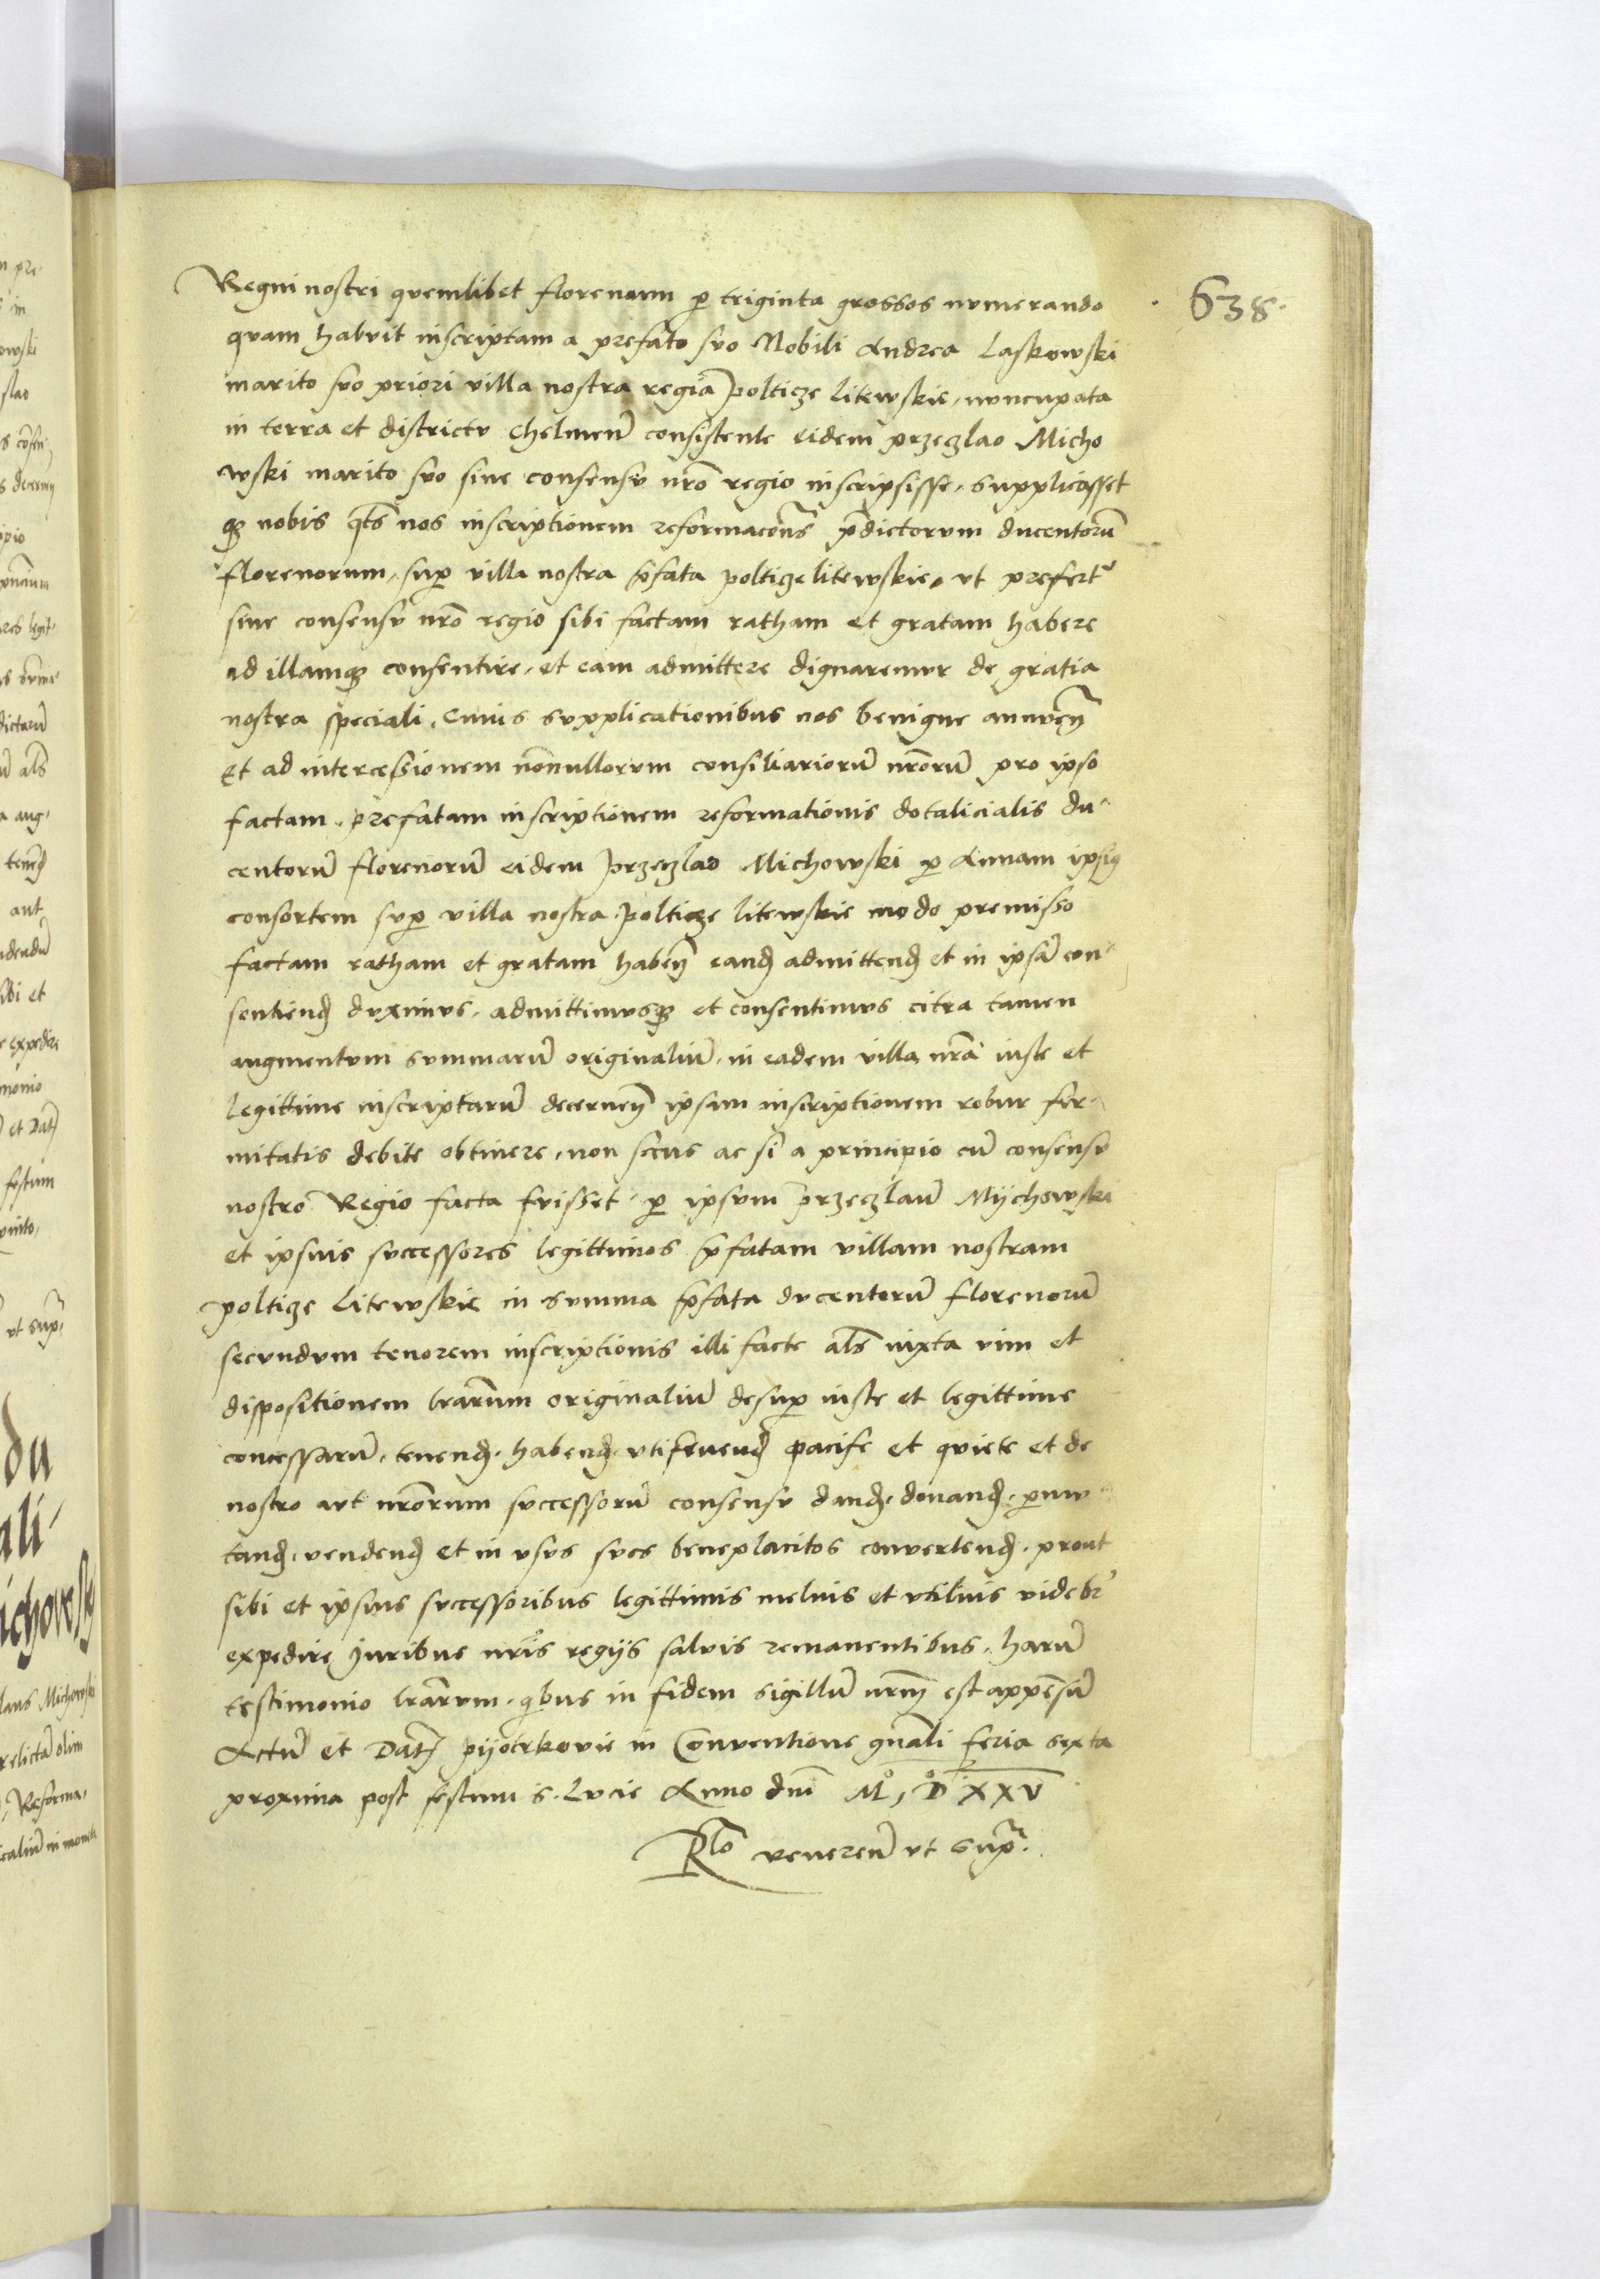 638.
Regni nostri quemlibet florenum p triginta grossos numerando
quam habuit inscriptam a prefato suo Nobili Andrea Laskowski
marito suo priori villa nostra regia Polticze litewskie, nuncupata
in terra et districtu Chelmen̄ consistente eidem Przeczlao Micho
wski marito suo sine consensu nro̅ regio inscripsisse, supplicasset
qꝫ nobis qts̅ nos inscriptionem reformacōns̅ p̅dictorum ducentoru̅
florenorum, sup villa nostra p̅fata Polticze litewskie, ut prefertr
sine consensu nro̅ regio sibi factam ratham et gratam habere
ad illamqꝫ consentire, et eam admittere dignaremur de gratia
nostra speciali, Cuius supplicationibus nos benigne annuen̅
Et ad intercessionem no̅nullorum consiliarioru̅ nro̅ru̅ pro ipso
factam, prefatam inscriptionem reformationis dotalicialis du
centoru̅ florenoru̅ eidem Przeczlao Michowski p Annam ipsiꝰ
consortem sup villa nostra Polticze litewskie modo premisso
factam ratham et gratam haben̅ eand admittend et in ipsa̅ con
sentiend duximus, admittimusqꝫ et consentimus citra tamen
augmentum summaru̅ originaliu̅, in eadem villa nra̅ iuste et
legittime inscriptaru̅ decernen̅ ipsam inscriptionem robur fir
mitatis debite obtinere, non secus ac si a principio cu̅ consensu
nostro Regio facta fuisset, p ipsum Przeczlau̅ Mychowski
et ipsius successores legittimos p̅fatam villam nostram
Polticze Litewskie in summa p̅fata ducentoru̅ florenoru̅
secundum tenorem inscriptionis illi facte als̅ iuxta vim et
dispositionem lra̅rum originaliu̅ desup iuste et legittime
concessaru̅, tenend, habend, utifruend pacife et quiete et de
nostro aut nro̅rum successoru̅ consensu dand, donand, pmu
tand, vendend et in usus suos beneplacitos convertend, prout
sibi et ipsius successoribus legittimis melius et utilius videbr̅
expedire Juribus nris̅ regijs salvis remanentibus, haru̅
testimonio lra̅rum, qbus in fidem sigillu̅ nrm̅ est appensu̅
Actu̅ et Dat̅ Pijotrkovie in Conventione gn̅ali feria sexta
proxima post festum S. Lucie Anno dni̅ Mo, Do XXV
Rlo veneren̅ ut supra.